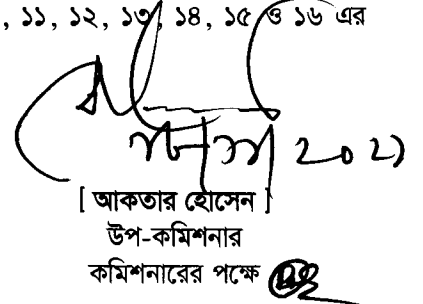 , ১১, ১২, ১৩, ১৪, ১৫ ও ১৬ এর
[ আকতার হোসেন ]
উপ-কমিশনার
কমিশনারের পক্ষে